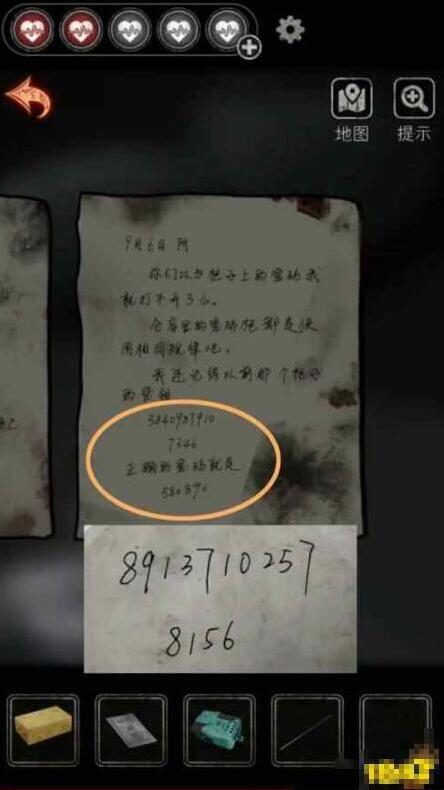 地图
提示
9月6日 阴
你们以为柜子上的密码我
就打不开了么。
仓库里的密码柜都是使
用相同规律吧。
我还记得以前那个柜子
的密码
5840987910
7346
正确的密码就是
580890
8913710257
8156